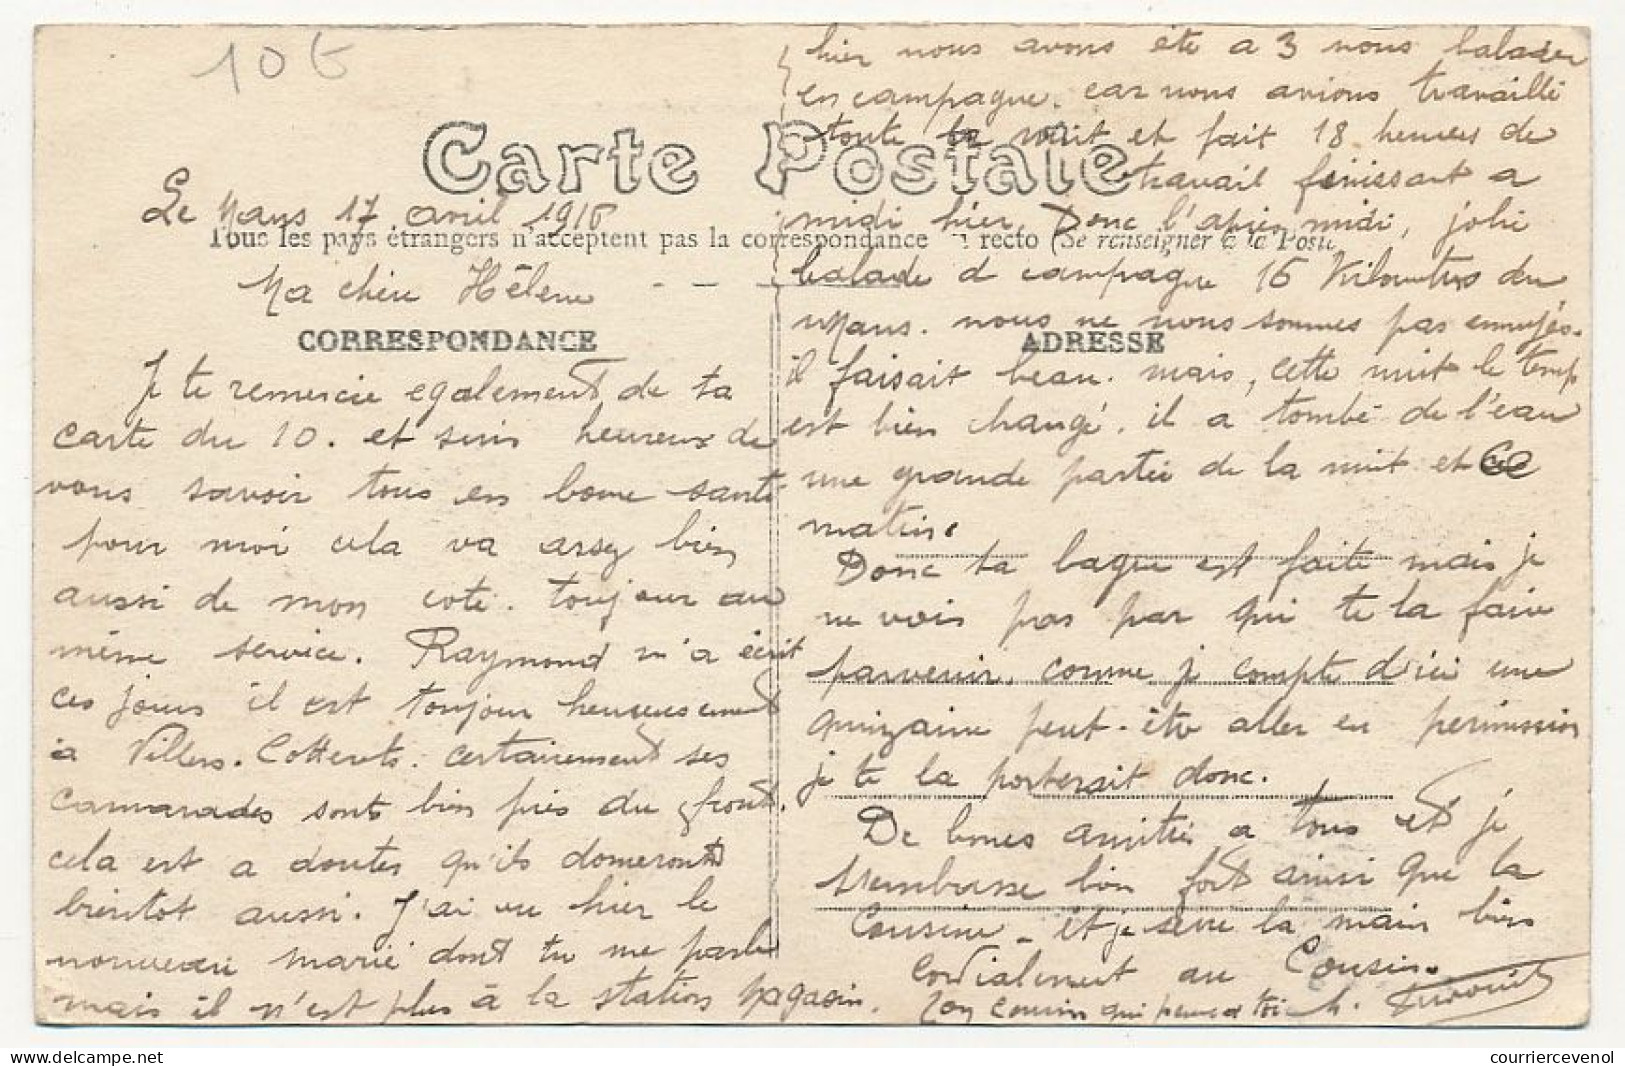 10€
Carte Postale
Le Mans 17 avril 1916
Tous les pays étrangers n'acceptent pas la correspondance recto (Se renseigner à la Poste
Ma chère Hélène
CORRESPONDANCE
Je te remercie egalement de ta
carte du 10. et suis heureux de
vous savoir tous en bonne santé
pour moi cela va assez bien
aussi de mon coté. toujour au
même service. Raymond m'a écrit
ces jours il est toujour heureusement
à Villers. Cotterets. certainement ses
camarades sont bien près du front.
cela est a doutes qu'ils donneronts
bientot aussi. J'ai vu hier le
nouveau marié dont tu me parle
mais il n'est plus à la station magasin.
hier nous avons été a 3 nous balader
en campagne. car nous avions travaillé
toute la nuit et fait 18 heures de
travail finissant a
midi hier. Donc l'après midi, jolie
balade d campagne 16 Kilomètres du
Mans. nous ne nous sommes pas ennuyés.
ADRESSE
il faisait beau. mais, cette nuit le temp
est bien changé. il a tombé de l'eau
une grande partie de la nuit et ce
matin.
Donc ta bague est faite mais je
ne vois pas par qui te la faire
parvenir. comme je compte d'ici une
quinzaine peut-être aller en permission
je te la porterait donc.
De bones amitiés a tous et je
t'embrasse bien fort ainsi que la
Cousine - et je serre la main bien
Cordialement au Cousin.
Ton cousin qui pense a toi
courriercevenol